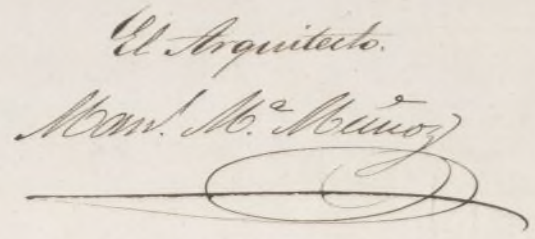 El Arquitecto.
Man.l M.ª Muñoz